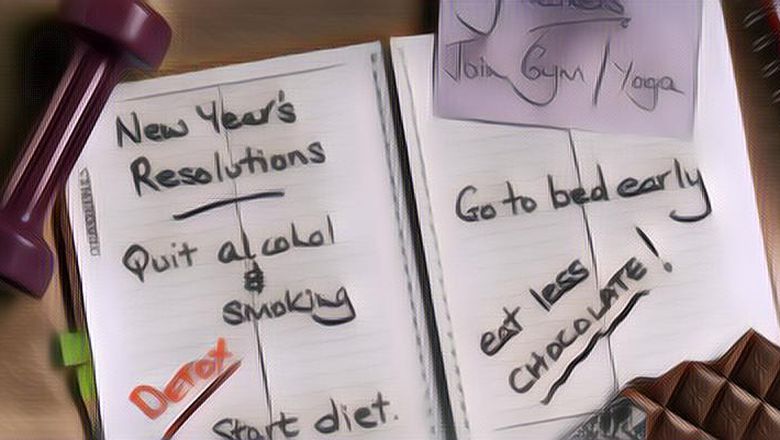 New Year's
Resolutions
Quit alcohol
&
smoking
DETOX
Start diet.
Join Gym / Yoga
Go to bed early
eat less
CHOCOLATE!